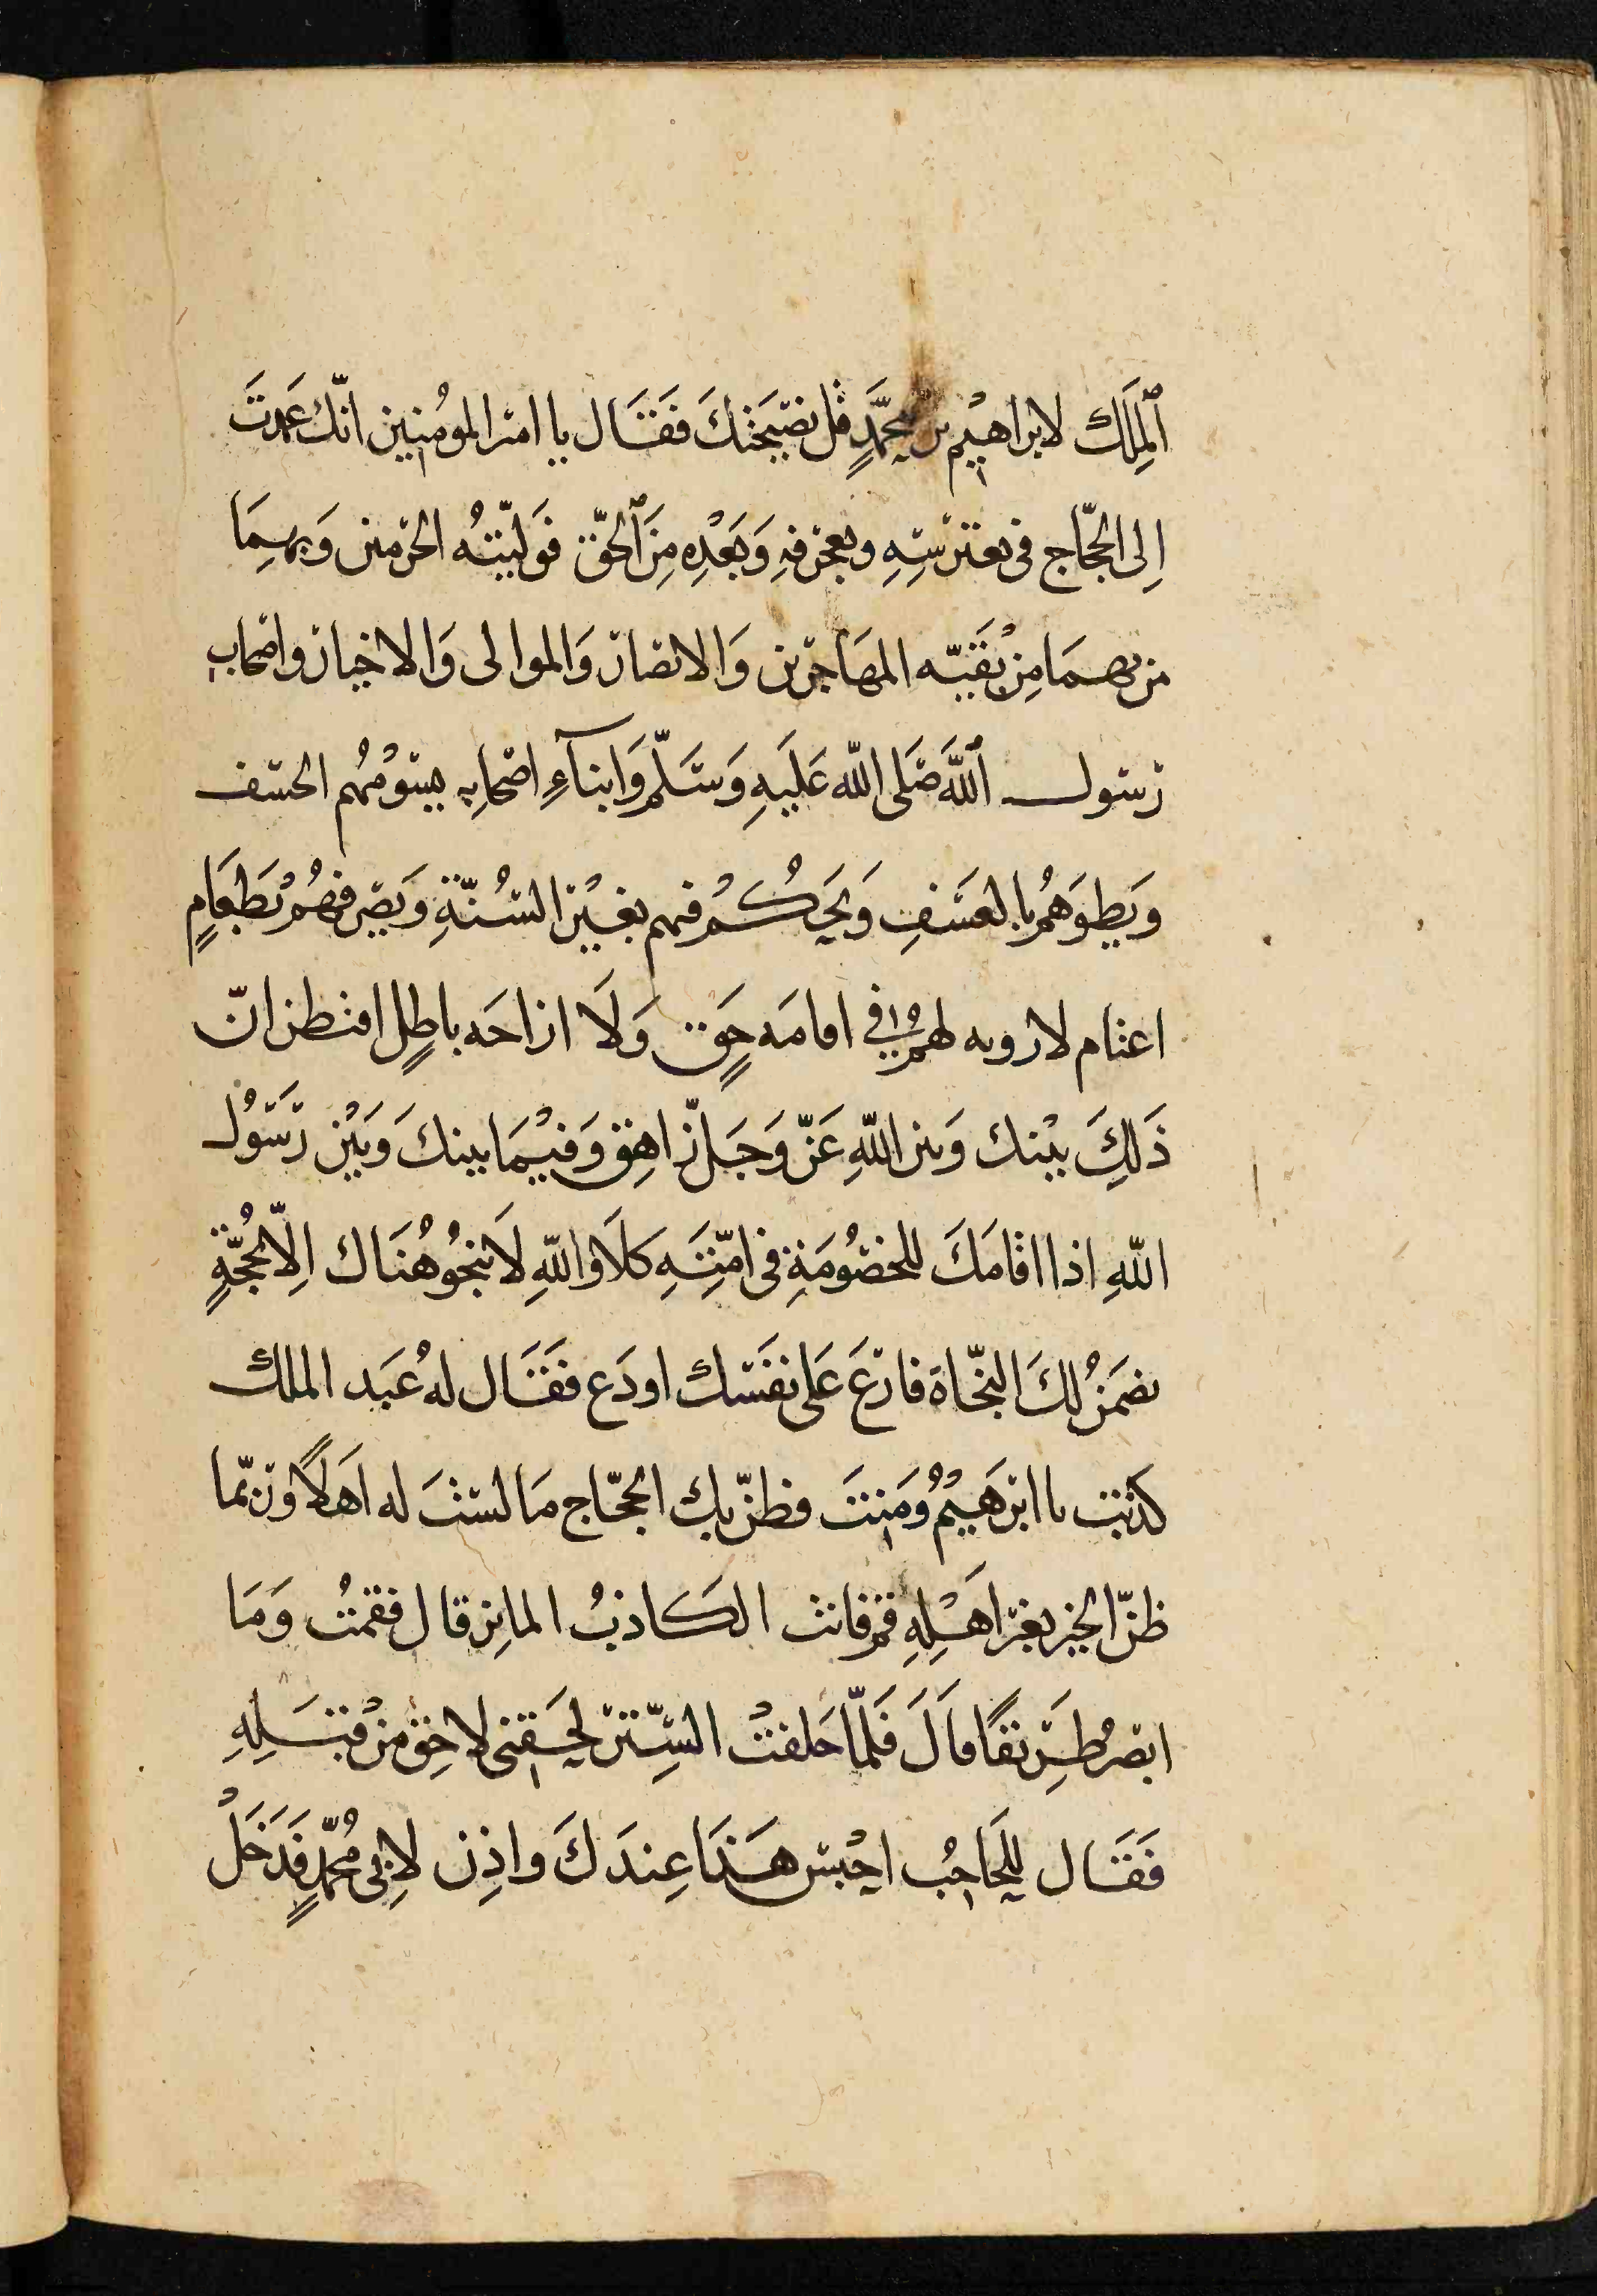 ٱلمِلَك لابراهيم بن محمّدٍ قل نصيحتكَ فَقَال يا امير المومُنين انّك عَمَدتَ
اِلى الحجّاج فى تعترسِهِ وتعجرفهِ وَبَعْدِه مِنَ ٱلحَقّ فوَلّيتهُ الحرمين وَبهمِا
من بهمَا مِنْ بقَيّه المهَاجرين وَالانصار وَالموالى وَالاخيار واصحاب
رسول ٱللَّه صَلى اللّه عَليَهِ وَسَلّم وَابناءِ اصحابِه يسوْمهُم الخسف
وَيطوَهمُ بالعسَفِ وَيحَكُمُ فيهم بغيْر السُنّةِ وَيصَرفهُمْ بَطعَامٍ
اغتام لا رويه لهم فى اقامَه حَقٍ وَلَا ازاحَه باطلٍ افتظن انّ
ذَلِكَ بيْنك وَبين اللّهِ عَزّ وَجَلّ زاهِق وَفيْمَا بينكَ وَبَيْن رَسَوُل
اللّهِ اذا اقامَكَ للخصُومَةِ فى امّتِهِ كلَا وَاللّهِ لَا تنجُو هُنَاك اِلّا بحُجّةٍ
تضمَنُ لكَ النجّاة فاربَع عَلى نفَسك اودَع فقَال لهُ عَبَد الملك
كذبت يا ابرَهيمُ وَمِنتَ وظنّ بك الحجّاج مَا لستَ له اَهلًا وربّما
ظنّ الخير بغير اَهْلِهِ قم فانت الكَاذبُ الماين قال فقمتُ وَمَا
ابصر طَرِيقًا قاَلَ فَلمّا خَلفتُ السِّتر لحَقنى لاحِق منْ قبَلهِ
فَقَال للحَاجُب احْبس هَذَا عِندَكَ واذِن لاِبى مُحَمّدٍ فَدَخَلْ